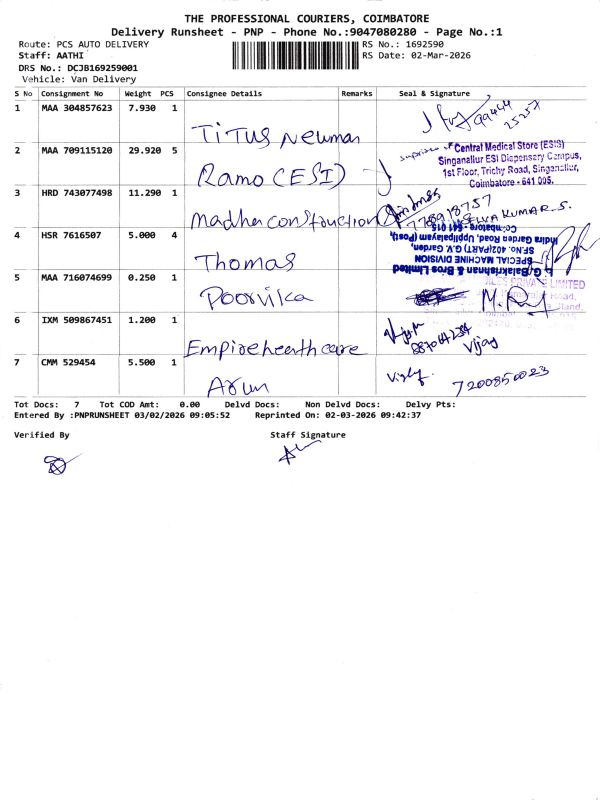 THE PROFESSIONAL COURIERS, COIMBATORE
Delivery Runsheet - PNP - Phone No.:9047080280 - Page No.:1
Route: PCS AUTO DELIVERY
RS No.: 1692590
Staff: AATHI
RS Date: 02-Mar-2026
DRS No.: DCJB169259001
Vehicle: Van Delivery
S No Consignment No Weight PCS Consignee Details Remarks Seal & Signature
1 MAA 304857623 7.930 1
Titus Newman
99444
25257
2 MAA 709115120 29.920 5
Ramo (ESI)
Central Medical Store (ESIS)
Singanallur ESI Dispensary Campus,
1st Floor, Trichy Road, Singanallur,
Coimbatore - 641 005.
3 HRD 743077498 11.290 1
Madha construction
7708918757
SELVA KUMAR. S.
4 HSR 7616507 5.000 4
Thomas
G. Balakrishnan & Bros Limited
SPECIAL MACHINE DIVISION
SF.No. 402(PART) G.V. Garden,
Indira Garden Road, Uppilipalayam (Post),
Coimbatore - 641 015
5 MAA 716074699 0.250 1
Poorvika
PRIVATE LIMITED
Road,
6 IXM 509867451 1.200 1
Empire hearth care
Vijay
7 CMM 529454 5.500 1
Arun
7200850023
Tot Docs: 7 Tot COD Amt: 0.00 Delvd Docs: Non Delvd Docs: Delvy Pts:
Entered By :PNPRUNSHEET 03/02/2026 09:05:52 Reprinted On: 02-03-2026 09:42:37
Verified By Staff Signature